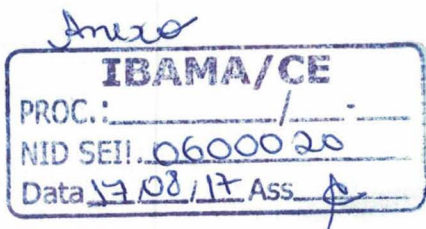 Anexo
IBAMA/CE
PROC.: / -
NID SEI!. 0600020
Data 17/08/17 Ass.